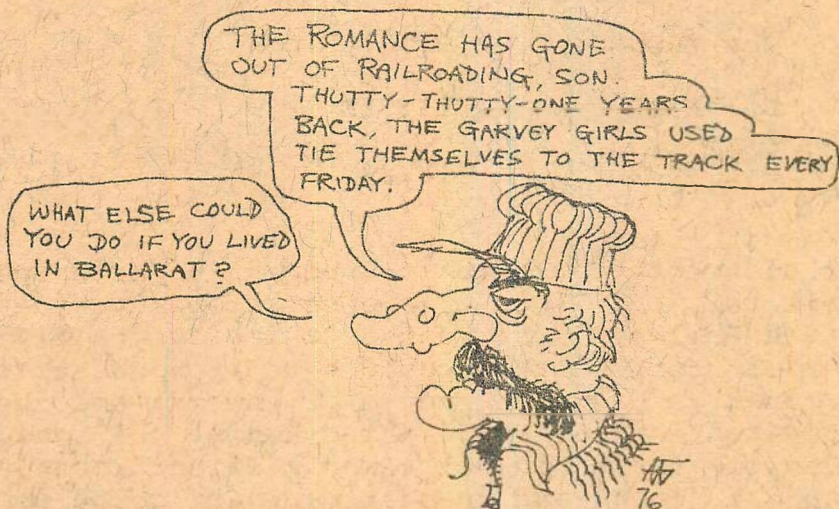 THE ROMANCE HAS GONE
OUT OF RAILROADING, SON.
THUTTY-THUTTY-ONE YEARS
BACK, THE GARVEY GIRLS USED
TIE THEMSELVES TO THE TRACK EVERY
FRIDAY.
WHAT ELSE COULD
YOU DO IF YOU LIVED
IN BALLARAT?
76